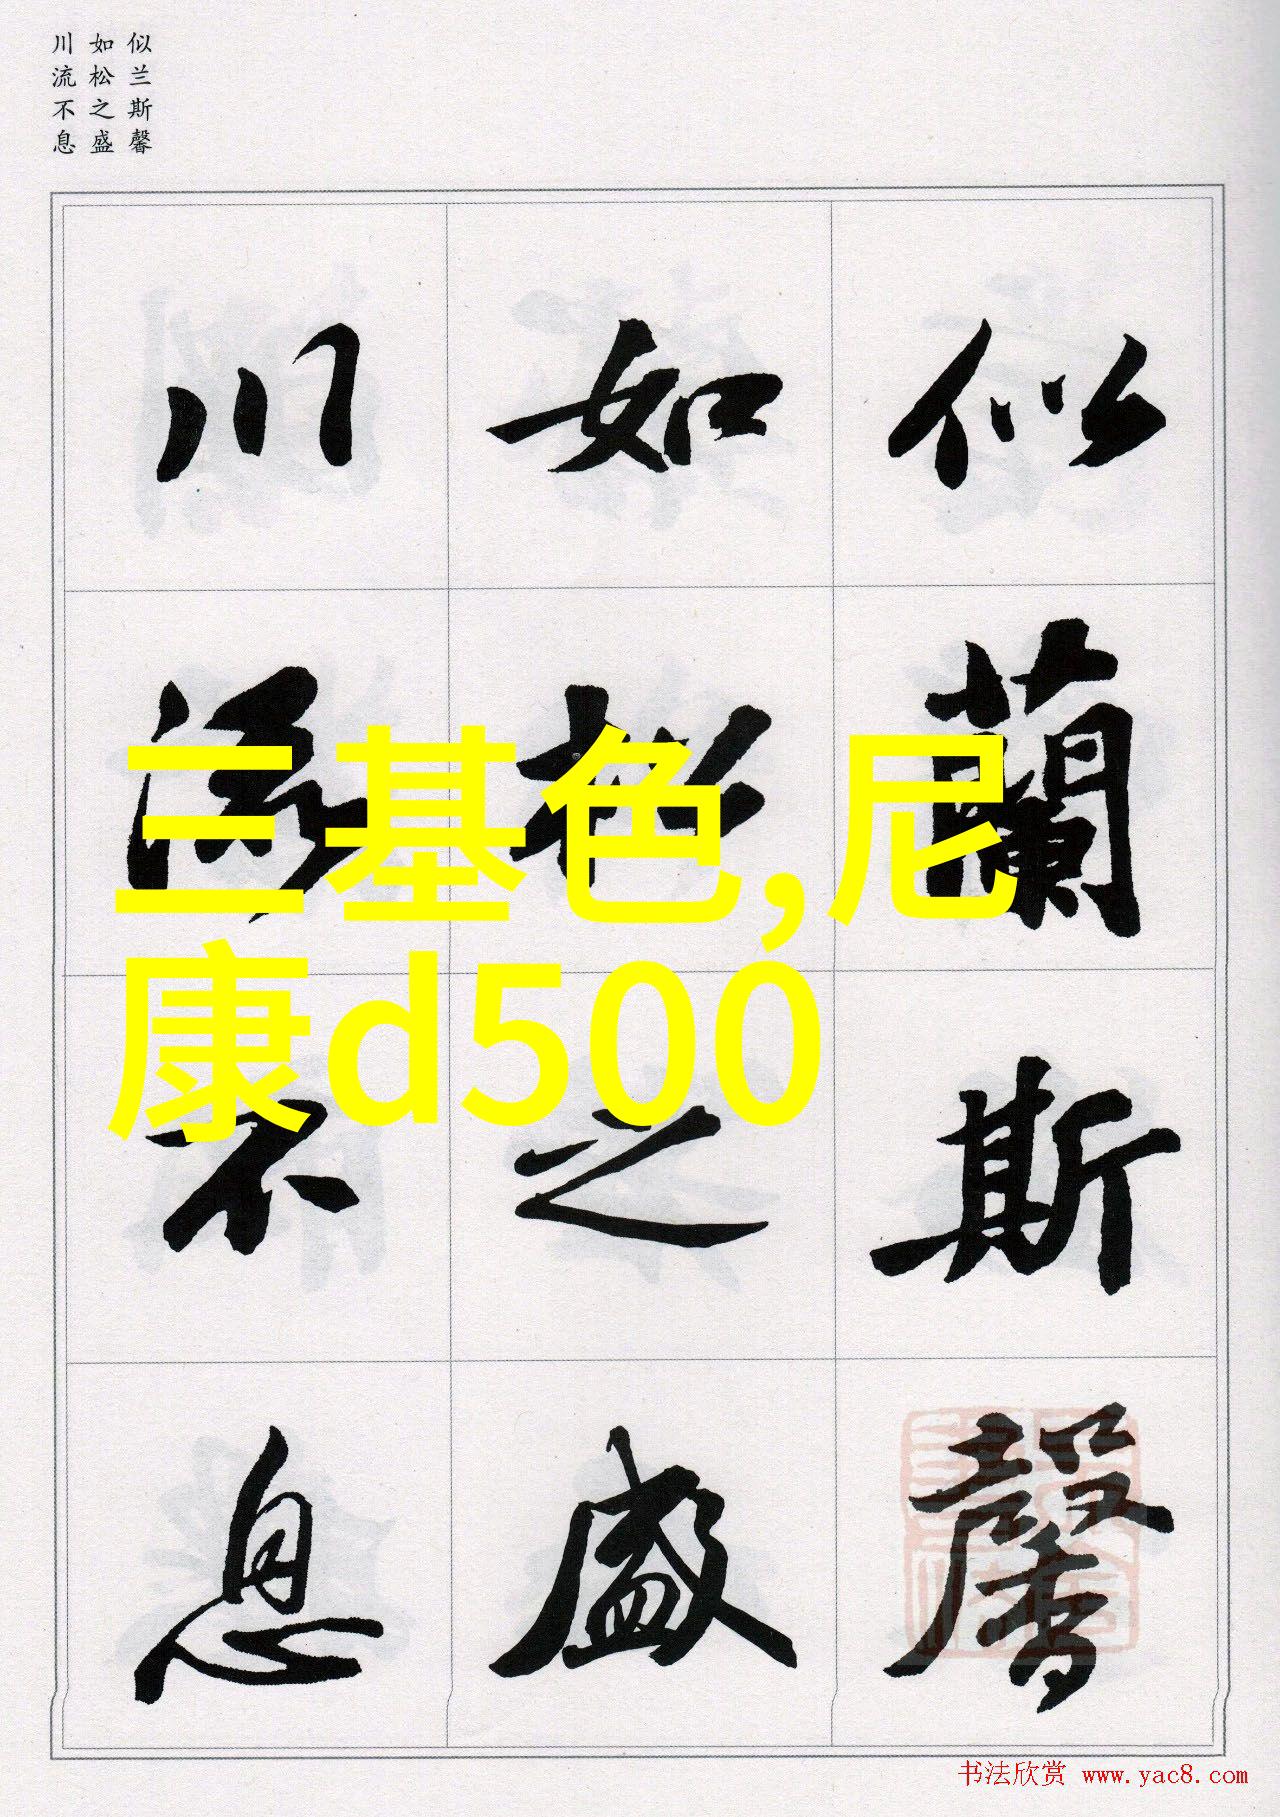 似兰斯馨
如松之盛
川流不息
似蘭斯馨
如松之盛
川流不息
三基色,尼
康d500
书法欣赏 www.yac8.com